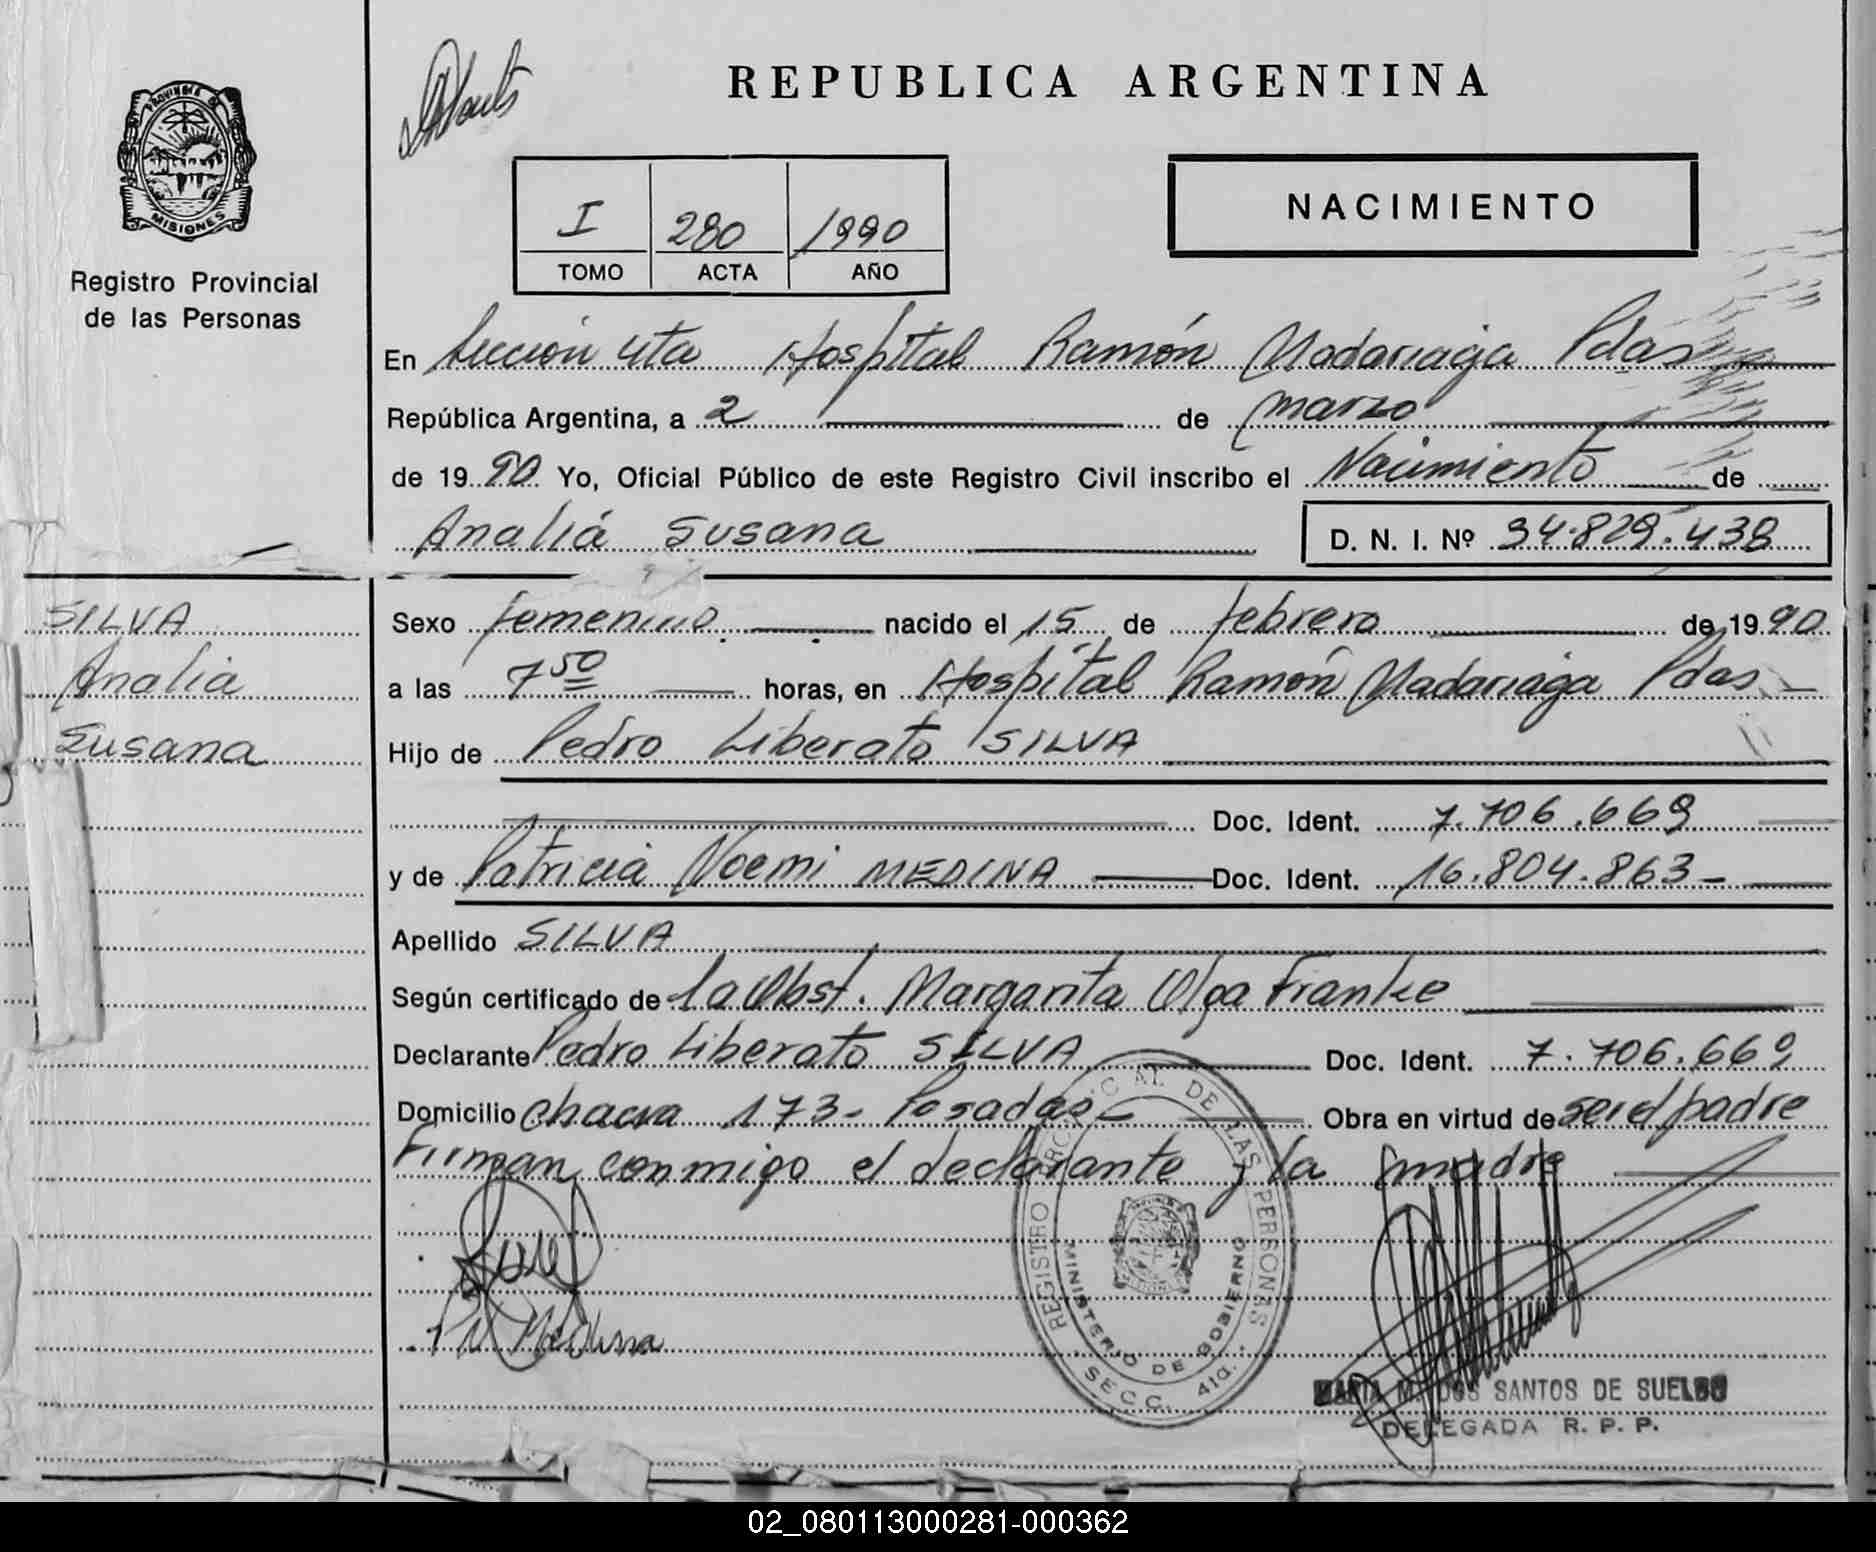 REPUBLICA ARGENTINA
PROVINCIA DE
MISIONES
Registro Provincial
de las Personas
I 280 1990
TOMO ACTA AÑO
NACIMIENTO
En Sección 4ta Hospital Ramón Madariaga Pdas
República Argentina, a 2 de marzo
de 1990 Yo, Oficial Público de este Registro Civil inscribo el Nacimiento de
Analiá Susana D. N. I. Nº 34.829.438
SILVA
Analia
Susana
Sexo femenino nacido el 15 de febrero de 1990
a las 7 50 horas, en Hospital Ramón Madariaga Pdas
Hijo de Pedro Liberato SILVA
Doc. Ident. 7.706.669
y de Patricia Noemi MEDINA Doc. Ident. 16.804.863
Apellido SILVA
Según certificado de la Obst. Margarita Olga Franke
Declarante Pedro Liberato SILVA Doc. Ident. 7.706.669
Domicilio chacra 173 - Posadas - Obra en virtud de ser el padre
Firman conmigo el declarante y la madre
REGISTRO PROVINCIAL DE LAS PERSONAS
MINISTERIO DE GOBIERNO
SECC. 41a.
Medina
MARIA M. DOS SANTOS DE SUELDO
DELEGADA R. P. P.
02_080113000281-000362